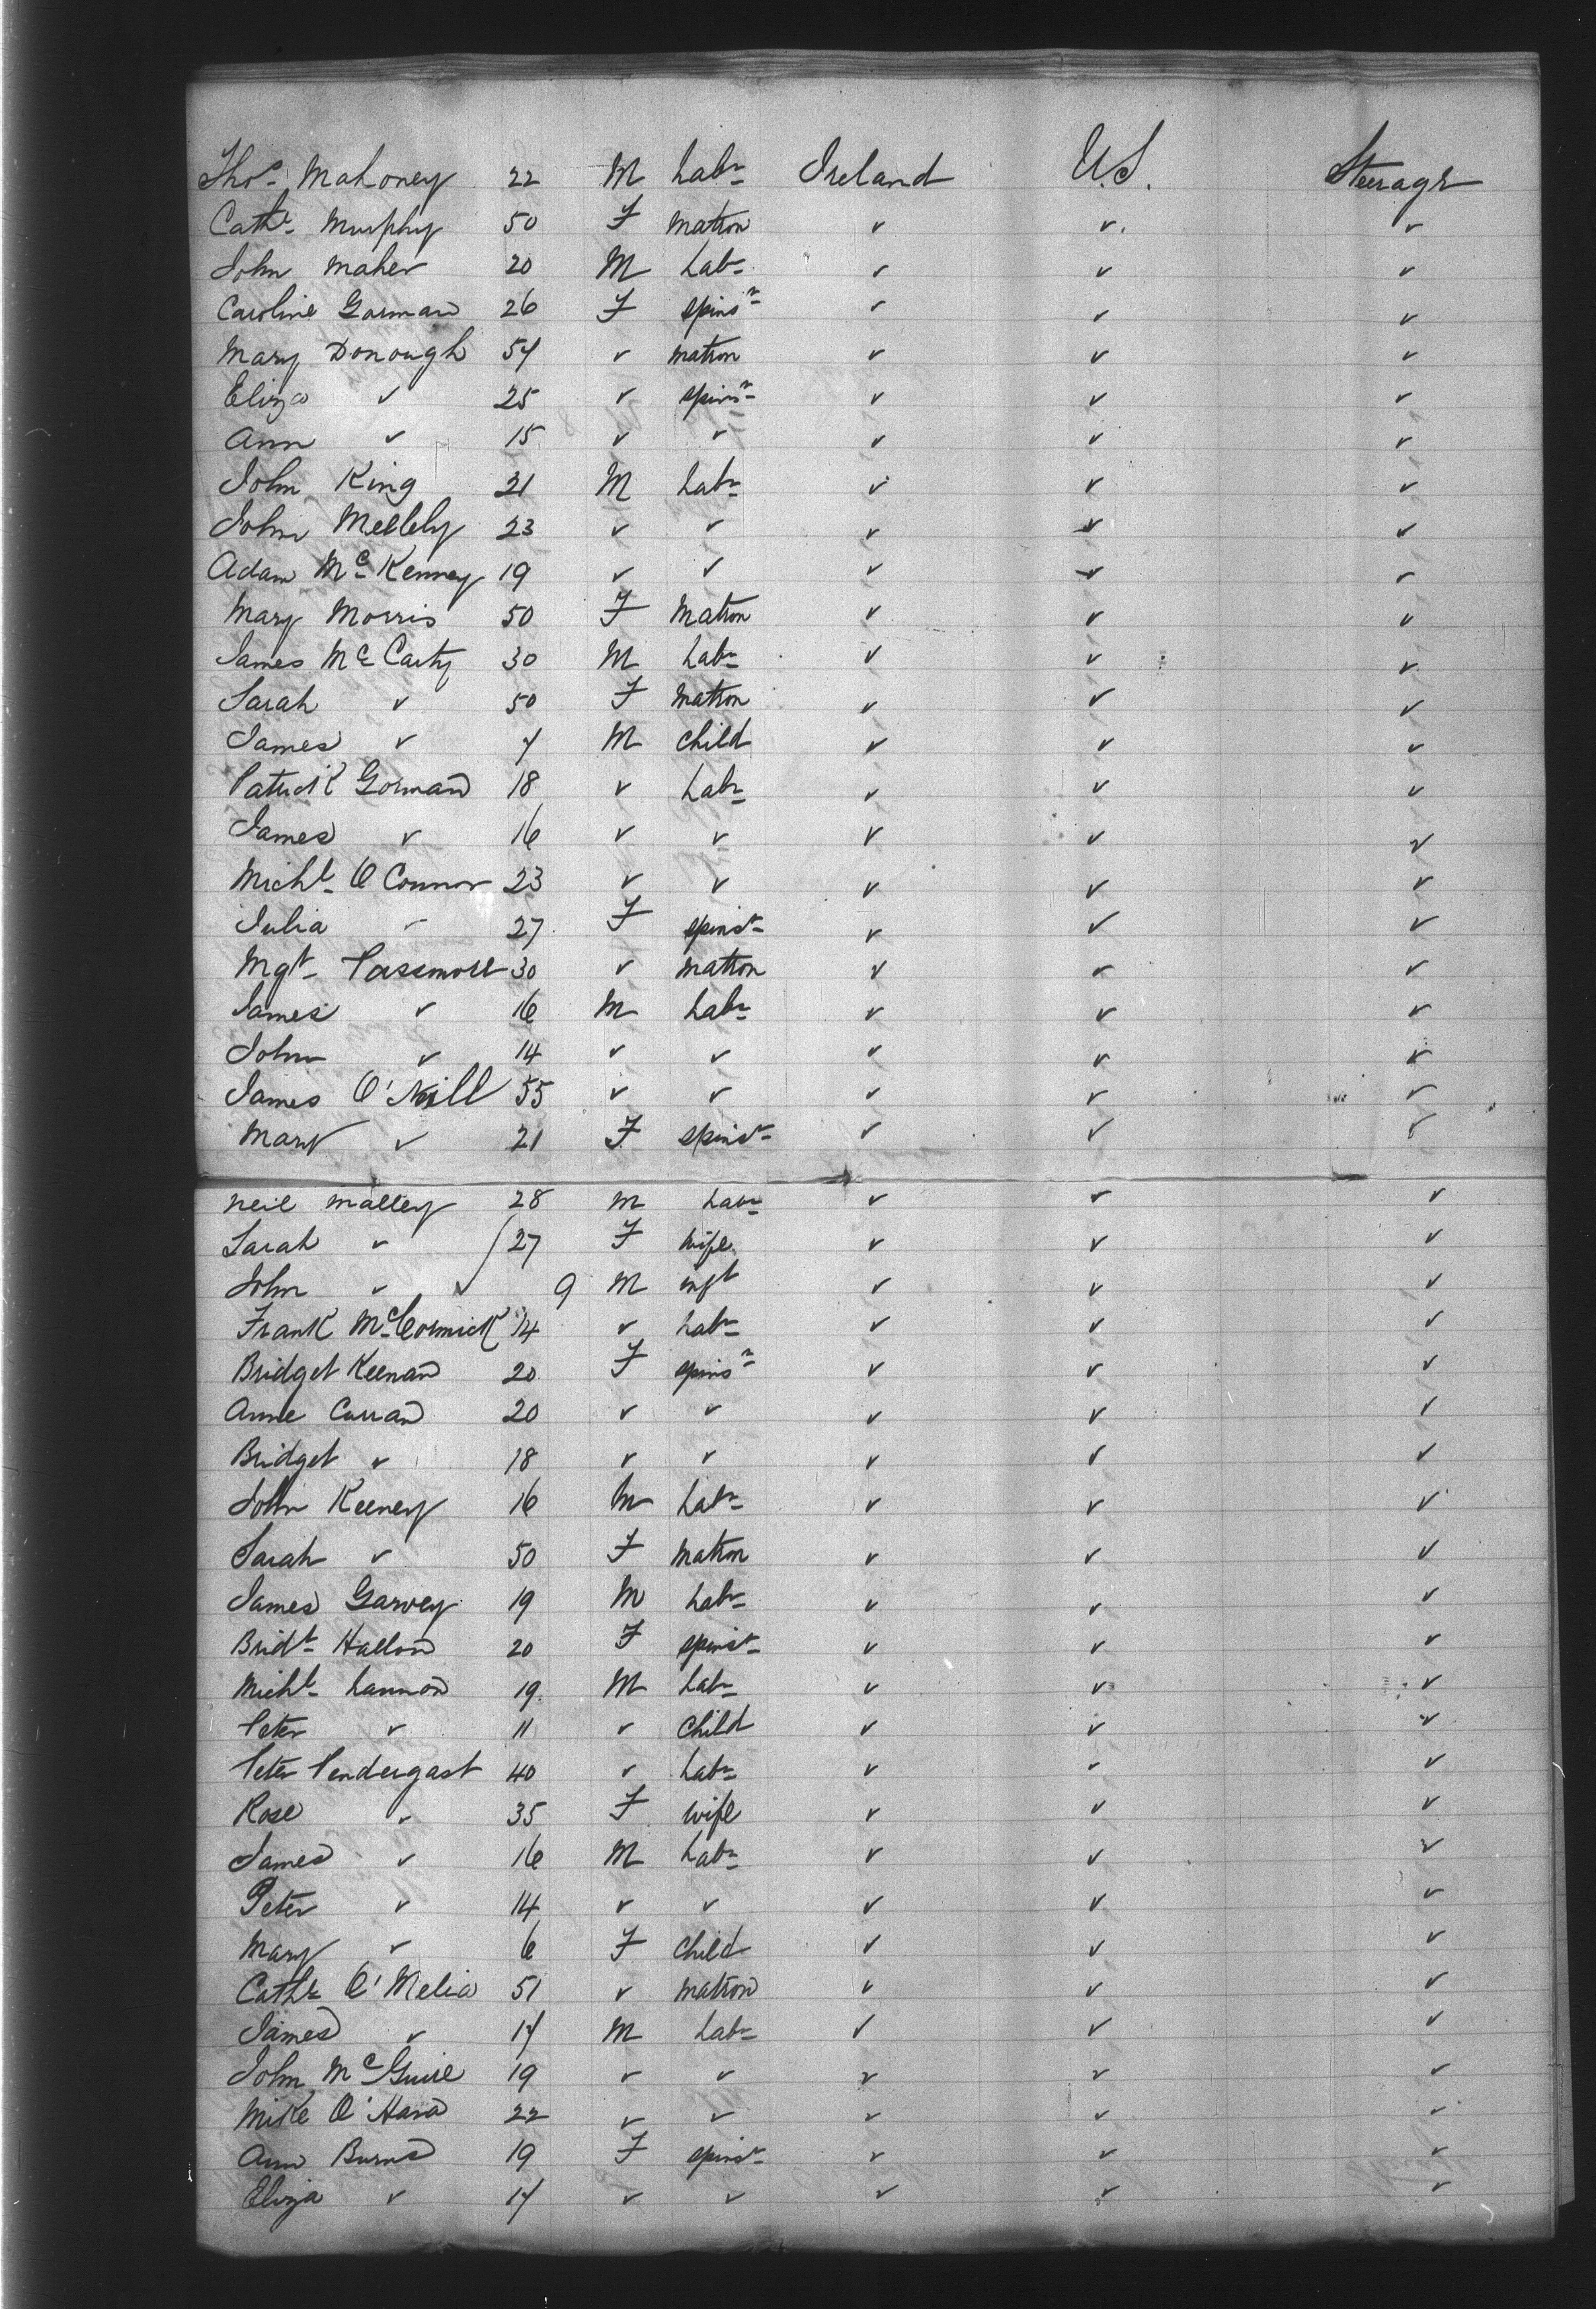 Thos. Mahoney 22 M Labr Ireland U.S. Steerage
Cathe Murphy 50 F matron v v. v
John Maher 20 M Labr v v v
Caroline Gorman 26 F spinsr v v v
Mary Donough 54 v matron v v v
Eliza v 25 v spinsr v v v
Ann v 15 v v v v v
John King 21 M Labr v v v
John 23 v v v v v
Adam McKenney 19 v v v v v
Mary Morris 50 F Matron v v v
James McCarty 30 M Labr v v v
Sarah v 50 F Matron v v v
James v M Child v v v
Patrick Gorman 18 v Labr v v v
James v 16 v v v v v
Michl O'Connor 23 v v v v v
Julia v 27 F spinst v v v
Mgt Passmore 30 v matron v v v
James v 16 M Labr v v v
John v 14 v v v v v
James O'Neill 55 v v v v v
Mary v 21 F spinst v v v
Neil Malley 28 M Labr v v v
Sarah v 27 F wife v v v
John v 9 M inft v v v
Frank McCormick 14 v Labr v v v
Bridget Keenan 20 F spinsr v v v
Anne Curran 20 v v v v v
Bridget v 18 v v v v v
John Keeney 16 M Labr v v v
Sarah v 50 F Matron v v v
James Garvey 19 M Labr v v v
Bridt Hallon 20 F spinst v v v
Michl Lannon 19 M Labr v v v
Peter v 11 v Child v v v
Peter Pendergast 40 v Labr v v v
Rose v 35 F wife v v v
James v 16 M Labr v v v
Peter v 14 v v v v v
Mary v 6 F Child v v v
Cathe O'Melia 51 v matron v v v
James v 17 M Labr v v v
John McGuire 19 v v v v v
Mike O'Hara 22 v v v v v
Ann Burns 19 F spinst v v v
Eliza v 17 v v v v v